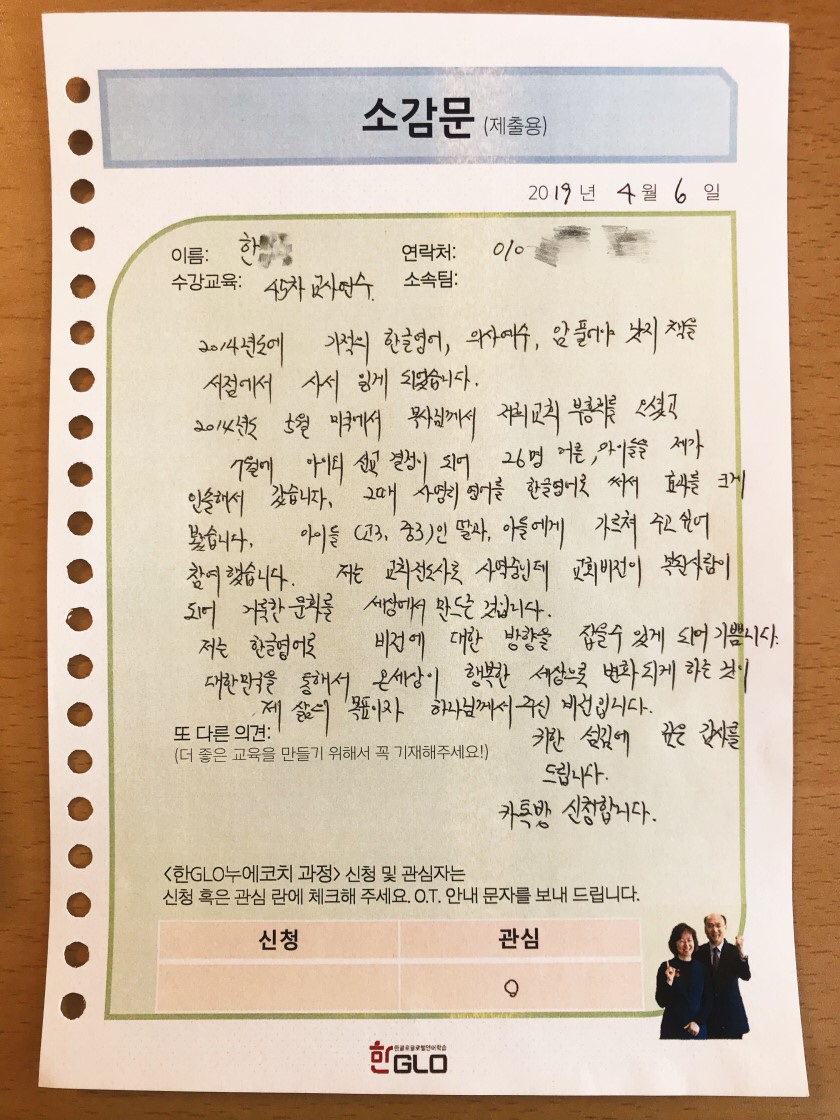 소감문 (제출용)
2019년 4월 6일
이름: 한
연락처: 010-
수강교육: 45차 교사연수.
소속팀:
2014년도에 기적의 한글영어, 의사예수, 암 풀어야 낫지 책을
서점에서 사서 읽게 되었습니다.
2014년도 5월 미국에서 목사님께서 저희교회 부흥회를 오셨고
7월에 아이티 선교 결정이 되어 26명 어른, 아이들을 제가
인솔해서 갔습니다. 그때 사영리 영어를 한글영어로 써서 효과를 크게
봤습니다. 아이들 (고3, 중3)인 딸과, 아들에게 가르쳐 주고 싶어
참여했습니다. 저는 교회전도사로 사역중인데 교회비전이 복된사람이
되어 거룩한 문화를 세상에서 만드는 것입니다.
저는 한글영어로 비전에 대한 방향을 잡을수 있게 되어 기쁩니다.
대한민국을 통해서 온세상이 행복한 세상으로 변화되게 하는 것이
제 삶의 목표이자 하나님께서 주신 비전입니다.
또 다른 의견:
(더 좋은 교육을 만들기 위해서 꼭 기재해주세요!)
귀한 섬김에 깊은 감사를
드립니다.
카톡방 신청합니다.
<한GLO누에코치 과정> 신청 및 관심자는
신청 혹은 관심 란에 체크해 주세요. O.T. 안내 문자를 보내 드립니다.
신청 관심
O
한글로글로벌언어학습
한GLO